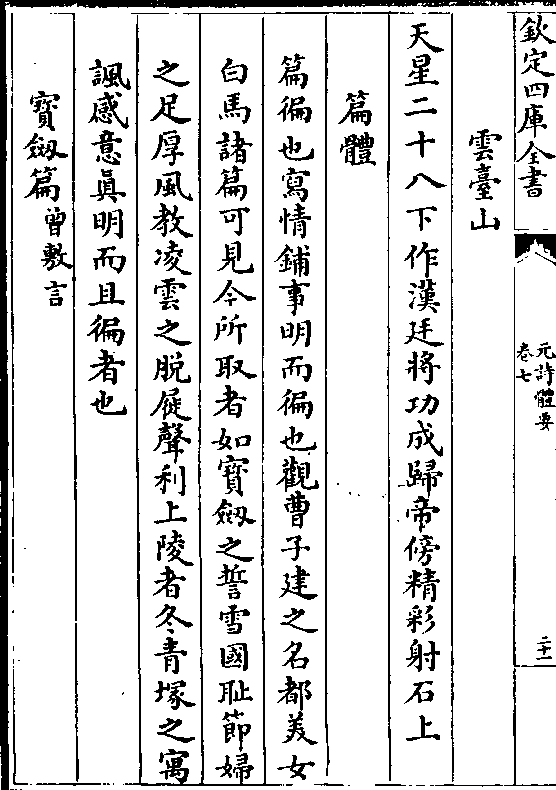 欽定四庫全書
元詩體要
卷七
二十一
雲臺山
天星二十八下作漢廷將功成歸帝傍精彩射石上
篇體
篇徧也寫情鋪事明而徧也觀曹子建之名都美女
白馬諸篇可見今所取者如寶劔之誓雪國恥節婦
之足厚風教凌雲之脫屣聲利上陵者冬青塚之寓
諷感意眞明而且徧者也
寶劔篇曾敷言